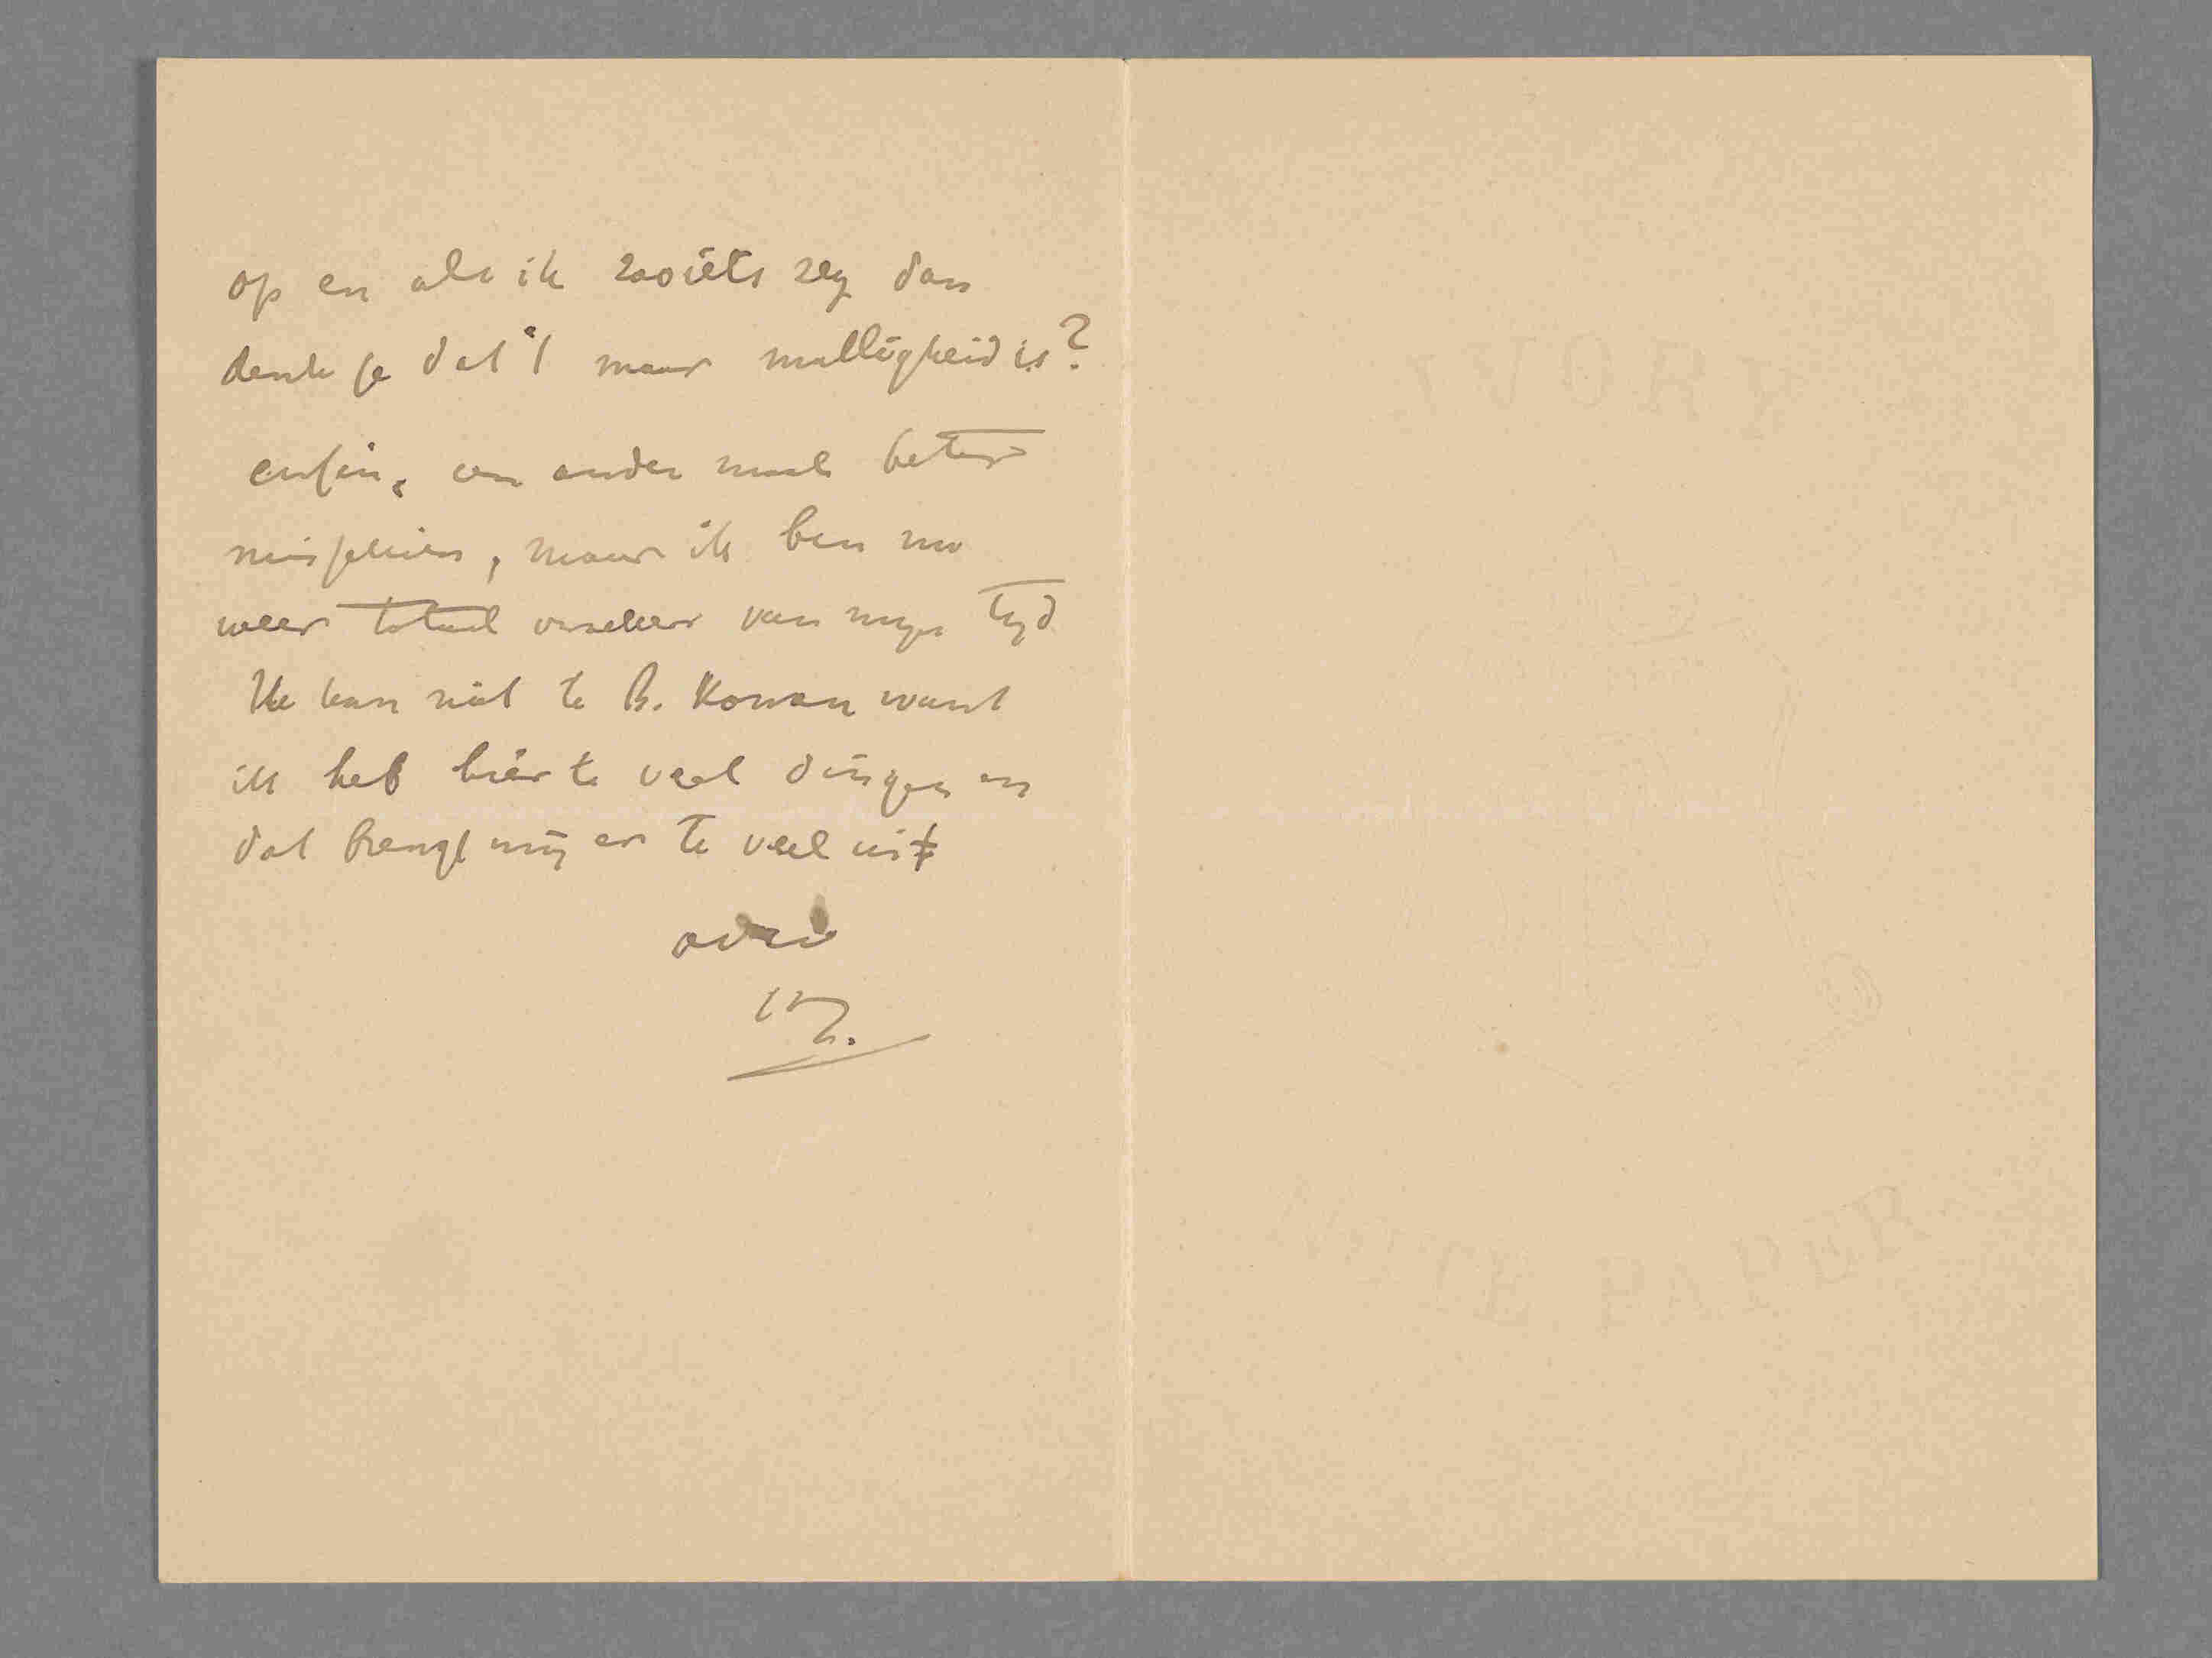 op en als ik zooiets zeg dan
denk je dat 't maar malligheid is?
enfin, een ander maal beter
misschien, maar ik ben nu
weer totaal onzeker van mijn tijd
Ik kan niet te B. komen want
ik heb hier te veel dingen en
dat brengt mij er te veel uit
adio
IVORY
NOTE PAPER